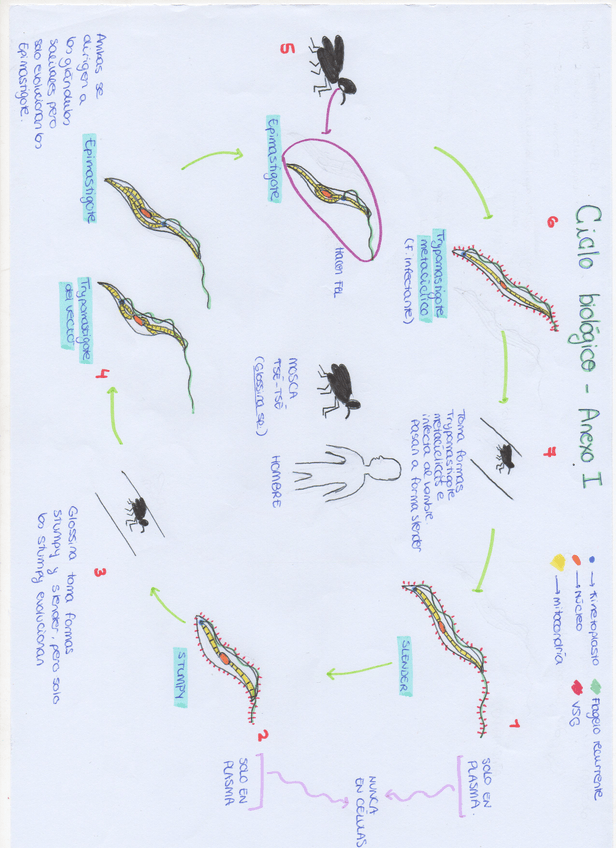 Ciclo biológico - Anexo I
→ Kinetoplasto
→ Núcleo
→ Mitocondria
Flagelo recurrente
VSG
1
SLENDER
SOLO EN
PLASMA.
NUNCA
EN CÉLULAS
2
STUMPY
SOLO EN
PLASMA
3
Glossina toma formas
stumpy y slender, pero solo
las stumpy evolucionan
4
Trypomastigote
del vector
Epimastigote
Ambas se
dirigen a
las glándulas
salivares pero
solo evolucionan los
Epimastigote.
5
Epimastigote
Hacen FB
6
Trypomastigote
metacíclico
(F. infectante)
7
Toma formas
Trypomastigote
metacíclicas e
infecta al hombre.
Pasan a forma slender
MOSCA
TSÉ-TSÉ
(Glossina sp.)
HOMBRE